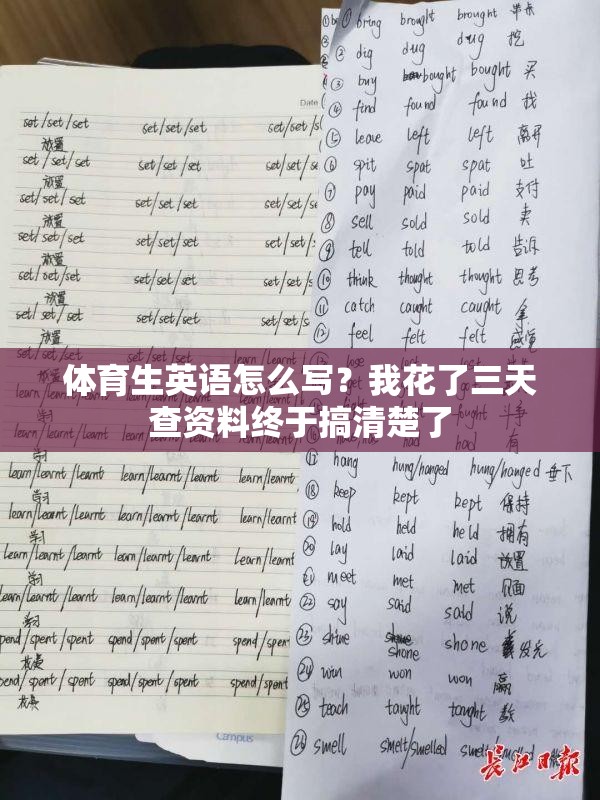 Date
set/set/set set/set/set set/set/s
放置
set/set/set set/set/set set/set/s
放置
set/set/set set/set/set set/set/s
放置
set/set/set set/set/set set/set/s
放置
set/set/set set/set/set set/set/s
放置
set/set/set set/set/set set/set/s
放置
体育生英语怎么写？我花了三天
查资料终于搞清楚了
学习
learn/learnt/learnt learn/learnt/learnt learn/learnt
学习
learn/learnt/learnt learn/learnt/learnt learn/learnt
学习
learn/learnt/learnt learn/learnt/learnt learn/learnt
学习
learn/learnt/learnt learn/learnt/learnt learn/learnt
学习
spend/spent/spent spend/spent/spent spend/spen
花费
spend/spent/spent spend/spent/spent spend/spent
花费
Campus
① bring brought brought 带来
② dig dug dug 挖
③ buy bought bought 买
④ find found found 找
⑤ leave left left 离开
⑥ spit spat spat 吐
⑦ pay paid paid 支付
⑧ sell sold sold 卖
⑨ tell told told 告诉
⑩ think thought thought 思考
⑪ catch caught caught 拿
⑫ feel felt felt 感觉
⑰ hang hung/hanged hung/hanged 垂下
⑱ keep kept kept 保持
⑲ hold held held 拥有
⑳ lay laid laid 放置
㉑ meet met met 见面
㉒ say said said 说
㉓ shine shone shone 发光
㉔ win won won 赢
㉕ teach taught taught 教
㉖ smell smelt/smelled smelt/smelled
长江日报